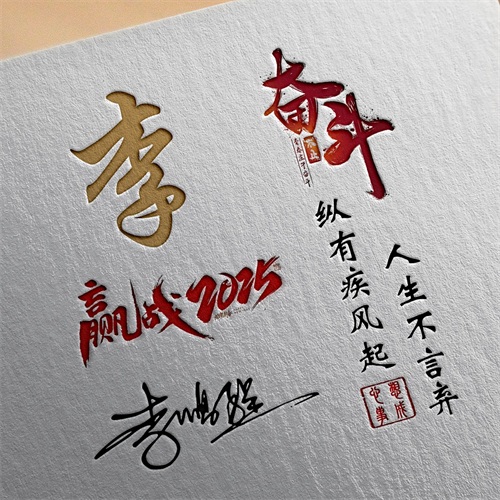 李
奋斗
赢战2025
纵有疾风起
人生不言弃
心想事成